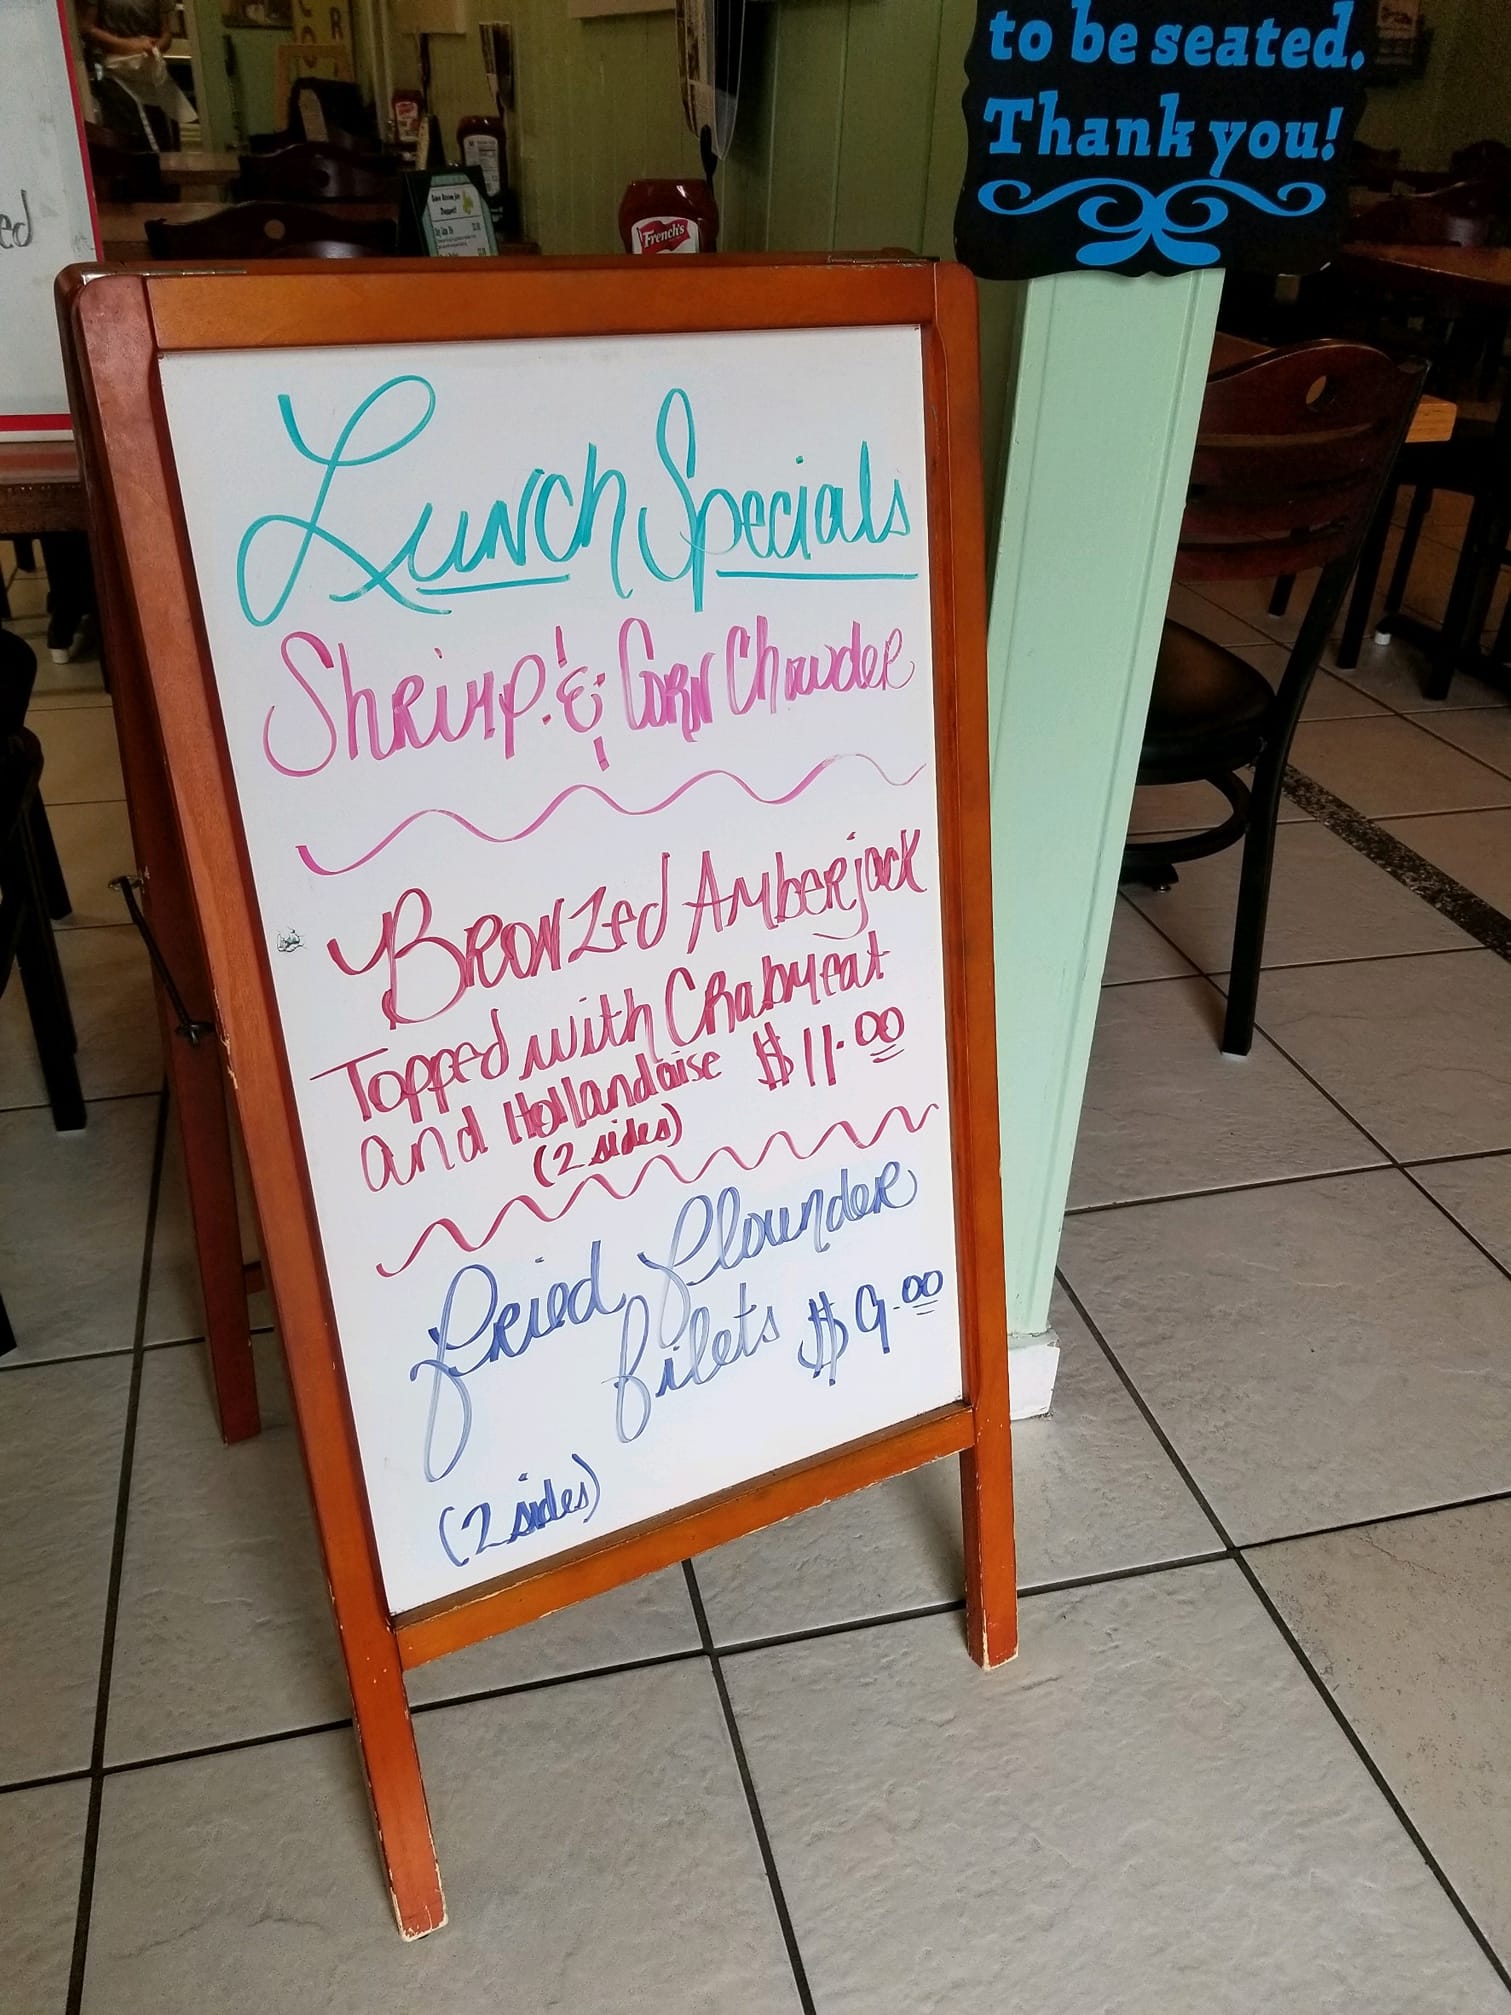 to be seated.
Thank you!
ed
French's
Lunch Specials
Shrimp & Corn Chowder
Bronzed Amberjack
Topped with Crabmeat
and Hollandaise $11.00
(2 sides)
fried flounder
filets $9.00
(2 sides)